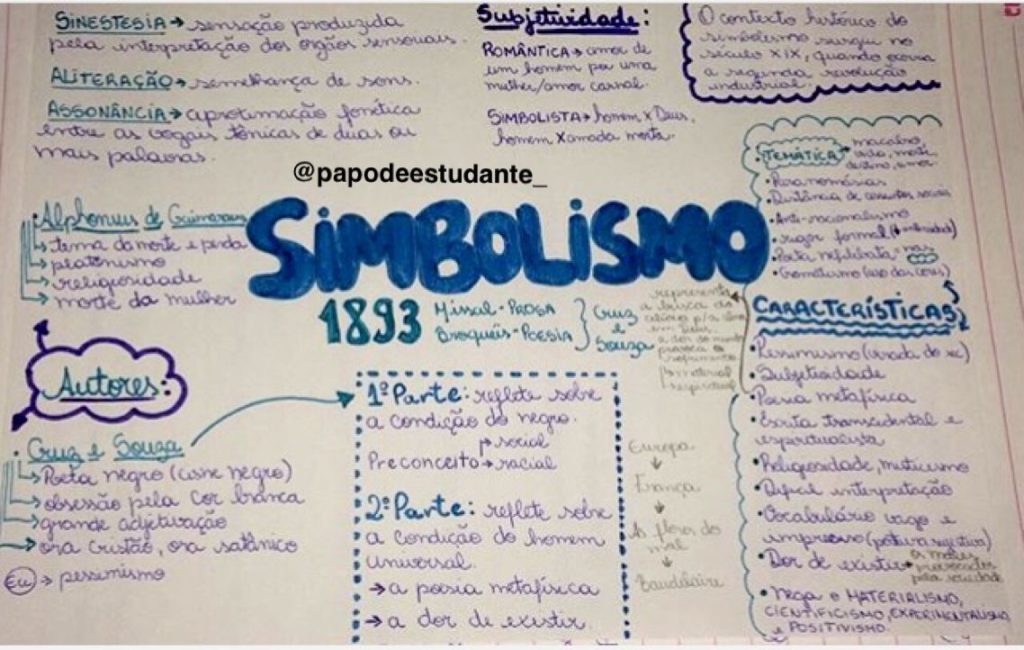 SINESTESIA → sensação produzida
pela interpretação dos orgãos sensoriais.
ALITERAÇÃO → semelhança de sons.
ASSONÂNCIA → aproximação fonética
entre as vogais tônicas de duas ou
mais palavras.
Subjetividade:
ROMÂNTICA → amor de
um homem por uma
mulher/amor carnal.
SIMBOLISTA → homem X Deus,
homem X amada morta.
O contexto histórico do
simbolismo surgiu no
século XIX, quando ocorria
a segunda revolução
industrial.
@papodeestudante_
SIMBOLISMO
1893
Missal - PROSA
Broquéis - POESIA
Cruz
e
Souza
• Alphonsus de Guimaraens
→ tema da morte e perda
→ platonismo
→ religiosidade
→ morte da mulher
Autores:
• Cruz e Souza
→ Poeta negro (cisne negro)
→ obsessão pela cor branca
→ grande adjetivação
→ ora cristão, ora satânico
Eu → pessimismo
1ª Parte: reflete sobre
a condição do negro.
social
Preconceito → racial
2ª Parte: reflete sobre
a condição do homem
universal.
→ a poesia metafísica
→ a dor de existir.
Europa
França
As flores do
mal
Baudelaire
TEMÁTICA
macabro
• Paronomásias
• Distância de assuntos sociais
• Anti-nacionalismo
• rigor formal
• Poeta nefelibata → nas
• Cromatismo (uso das cores)
representa
a busca do
material
espiritual
CARACTERÍSTICAS
• Pessimismo (virada do séc)
• Subjetividade
• Poesia metafísica
• Escrita transcidental e
espiritualista
• Religiosidade, misticismo
• Difícil interpretação
• Vocabulário vago e
impreciso (postura sugestiva)
• Dor de existir →
provocadas
pela sociedade
• Nega o MATERIALISMO,
CIENTIFICISMO, EXPERIMENTALISMO
e POSITIVISMO.